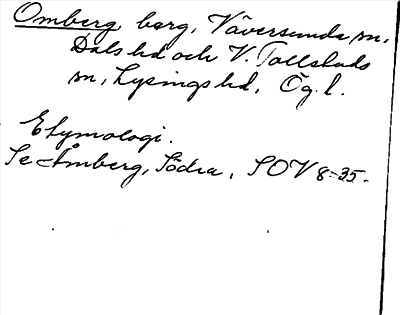 Omberg berg, Väversunda sn,
Dals hd och V. Tollstads
sn, Lysings hd, Ög. l.
Etymologi.
Se Åmberg, Södra, SOV 8-35.